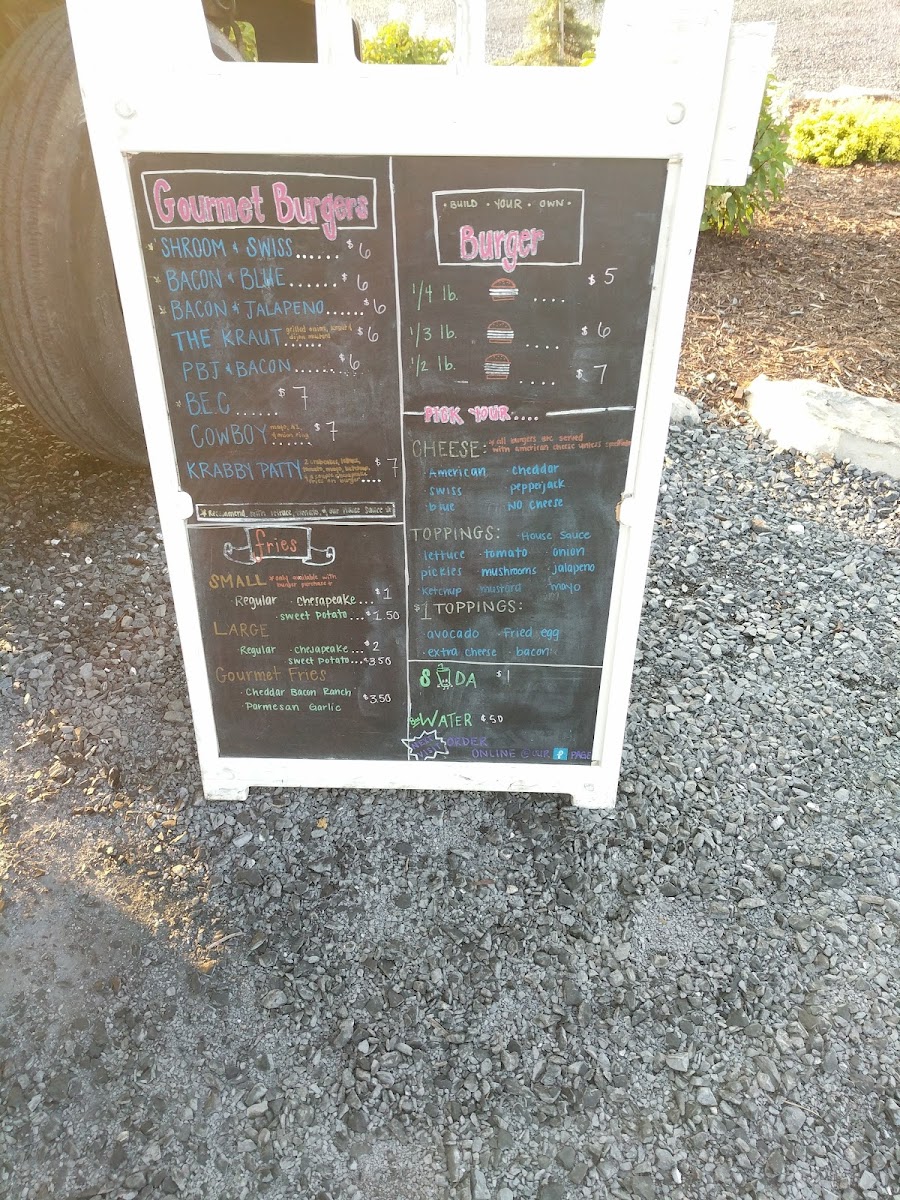 Gourmet Burgers
* SHROOM & SWISS....... $6
* BACON & BLUE....... $6
* BACON & JALAPENO...... $6
THE KRAUT grilled onion, kraut & dijon mustard ...... $6
PBJ & BACON ........ $6
* B.E.C ...... $7
COWBOY mayo, A1, & onion ring ...... $7
KRABBY PATTY $7
* Recommend with lettuce, tomato, & our House Sauce *
fries
SMALL * only available with burger purchase *
Regular · chesapeake ... $1
· sweet potato ... $1.50
LARGE
· Regular · chesapeake ... $2
sweet potato ... $3.50
Gourmet Fries
· Cheddar Bacon Ranch $3.50
· Parmesan Garlic
· BUILD · YOUR · OWN ·
Burger
1/4 lb. .... $5
1/3 lb. .... $6
1/2 lb. .... $7
PICK YOUR....
CHEESE: * all burgers are served with american cheese unless specified
· American cheddar
· swiss pepperjack
· blue NO cheese
TOPPINGS: · House Sauce
lettuce · tomato · onion
pickles · mushrooms · jalapeno
· ketchup · mustard · mayo
$1 TOPPINGS:
· avocado · Fried egg
· extra cheese · bacon
SODA $1
WATER ¢50
ORDER
ONLINE @ OUR f PAGE